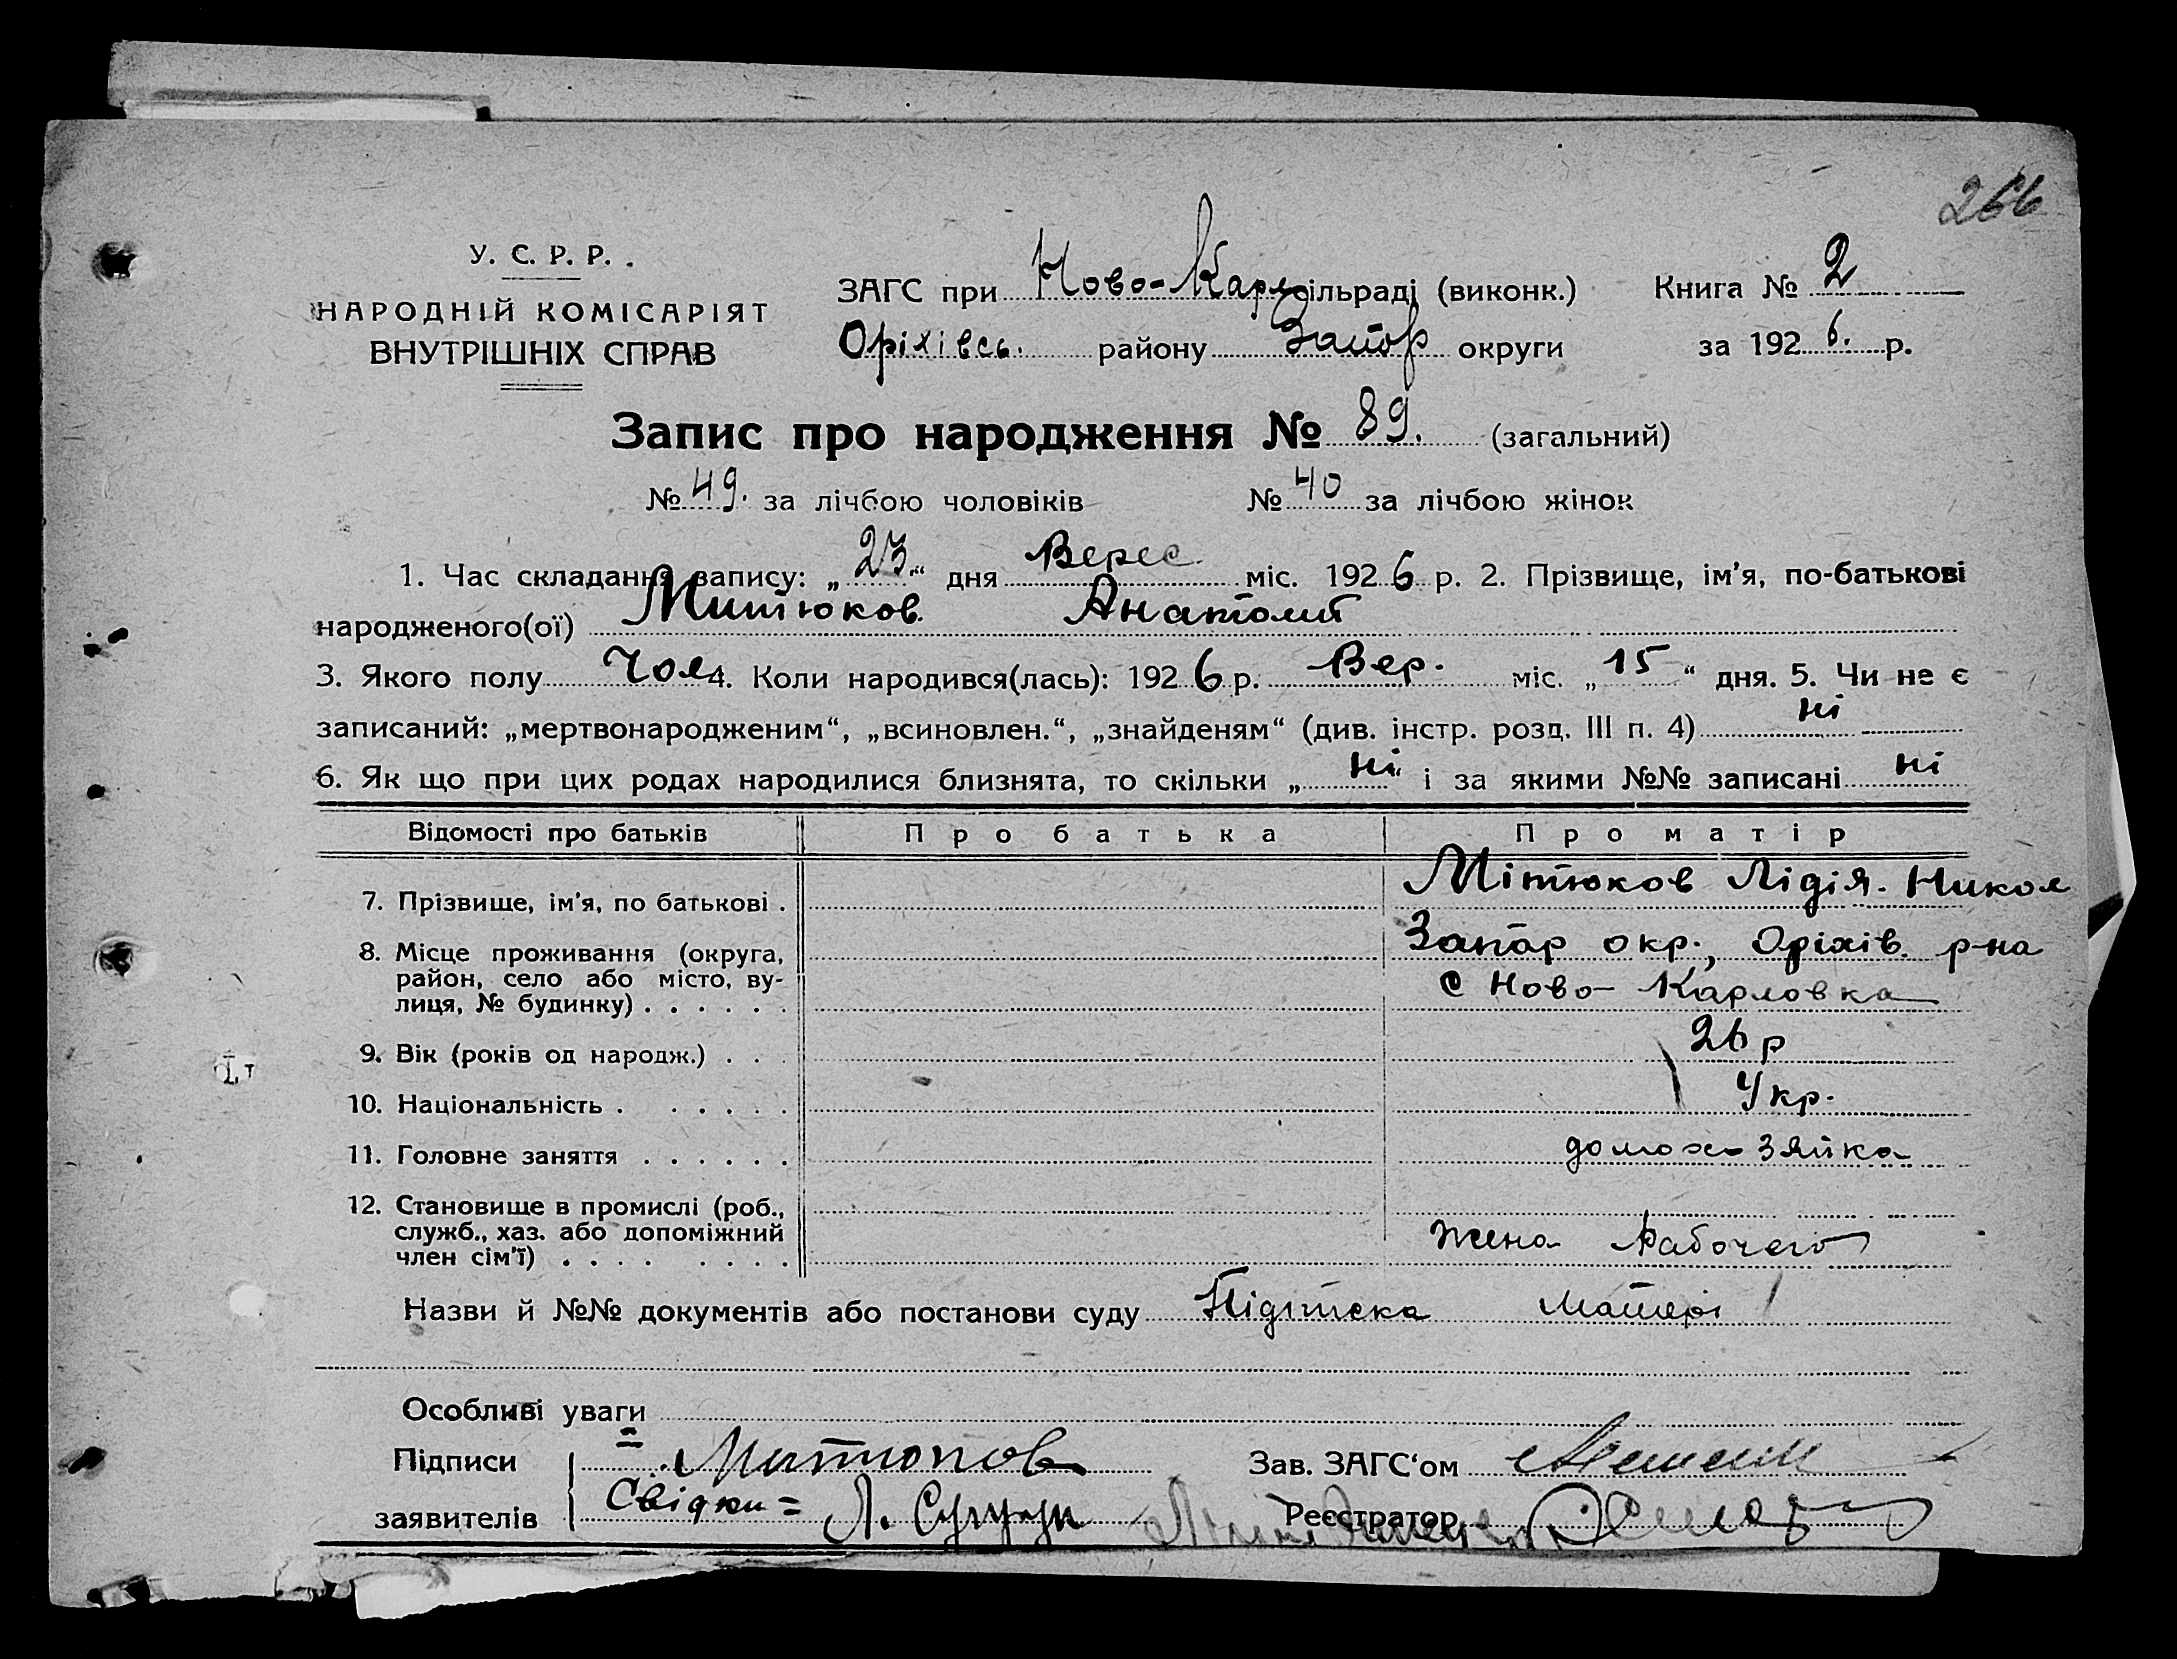 266
У. С. Р. Р.
НАРОДНІЙ КОМІСАРІЯТ
ВНУТРІШНІХ СПРАВ
ЗАГС при Ново-Карл сільраді (виконк.) Книга № 2
Оріхівсь. району Запор округи за 1926. р.
Запис про народження № 89. (загальний)
№ 49. за лічбою чоловіків № 40 за лічбою жінок
1. Час складання запису: „23.“ дня Верес. міс. 1926 р. 2. Прізвище, ім’я, по-батькові
народженого(ої) Митюков. Анатолий
3. Якого полу Чол 4. Коли народився(лась): 1926 р. Вер. міс. „15“ дня. 5. Чи не є
записаний: „мертвонародженим“, „всиновлен.“, „знайденям“ (див. інстр. розд. III п. 4) ні
6. Як що при цих родах народилися близнята, то скільки „ні“ і за якими №№ записані ні
Відомості про батьків Про батька Про матір
7. Прізвище, ім’я, по батькові . Мітюков Лідія. Никол
8. Місце проживання (округа, Запор окр., Оріхів. р-на
район, село або місто, ву- с Ново-Карловка
лиця, № будинку) . . . . . .
9. Вік (років од народж.) . . . 26 р
10. Національність . . . . . . Укр.
11. Головне заняття . . . . . . домохозяйка
12. Становище в промислі (роб.,
служб., хаз. або допоміжний Жена Рабочего
член сім’ї) . . . . . . . .
Назви й №№ документів або постанови суду Підписка Матері
Особливі уваги
Підписи Митюков Зав. ЗАГС‘ом
заявителів Свідки = Л. Реєстратор